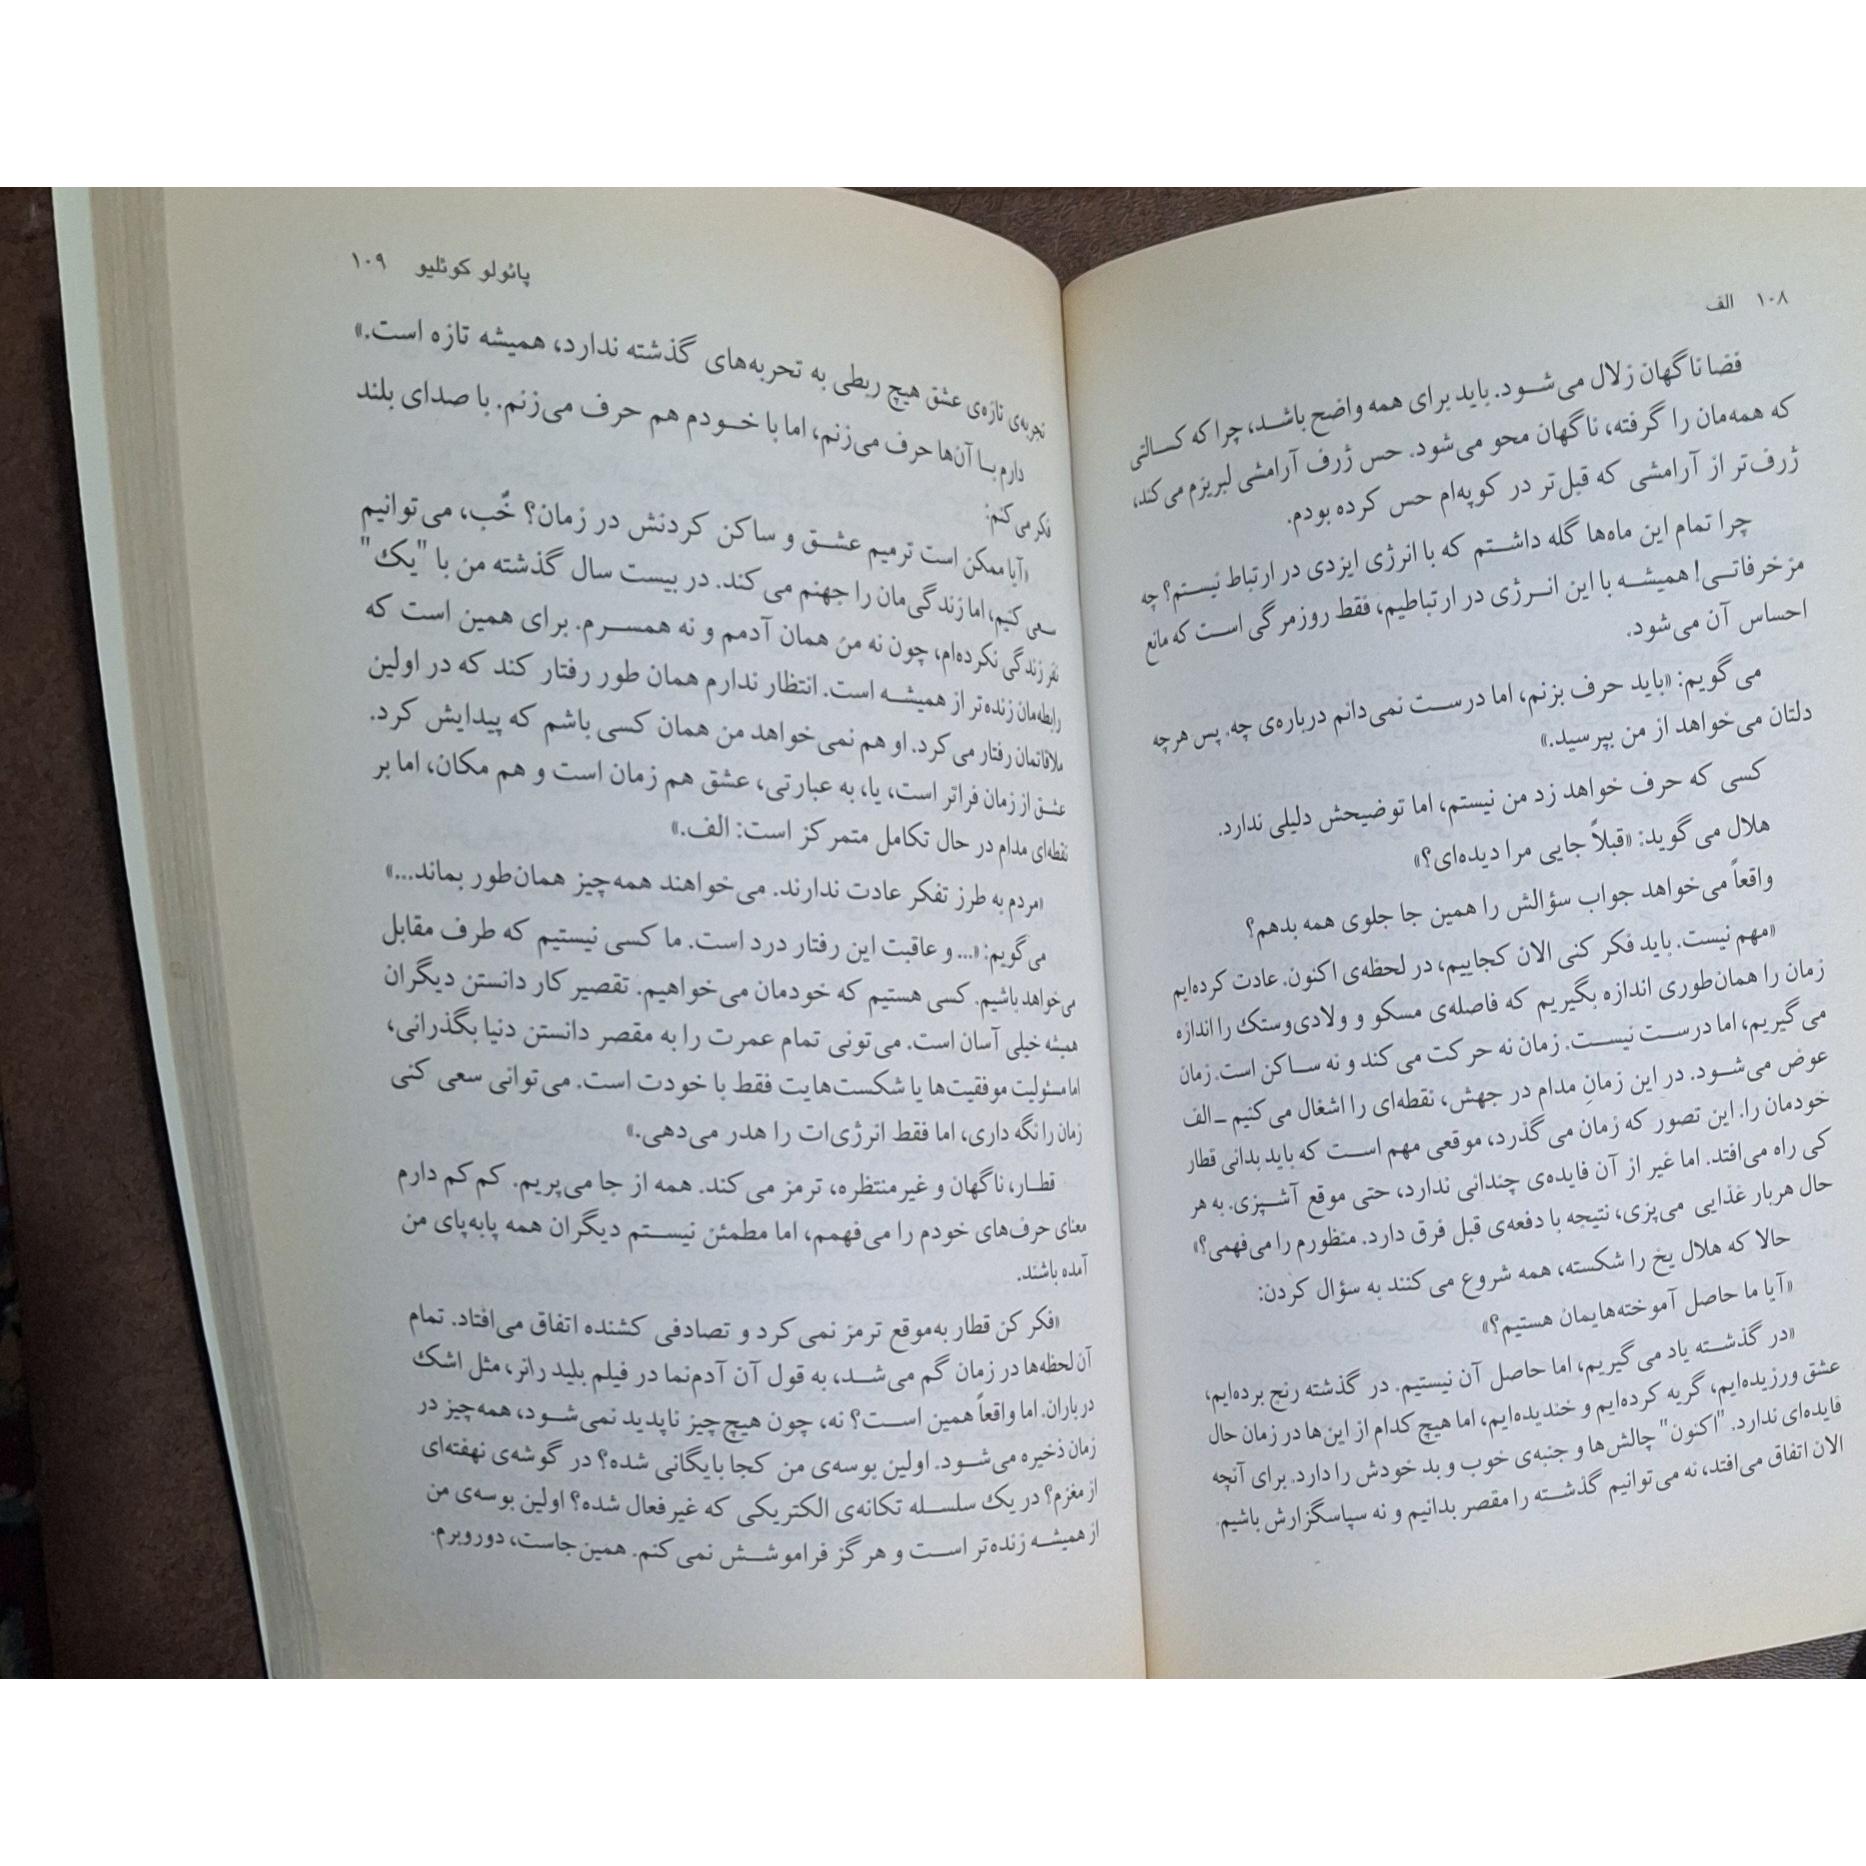 ۱۰۸ الف
فضا ناگهان زلال می‌شود. باید برای همه واضح باشد، چرا که کسالتی
که همه‌مان را گرفته، ناگهان محو می‌شود. حس ژرف آرامشی لبریزم می‌کند،
ژرف‌تر از آرامشی که قبل‌تر در کوپه‌ام حس کرده بودم.
چرا تمام این ماه‌ها گله داشتم که با انرژی ایزدی در ارتباط نیستم؟ چه
مزخرفاتی! همیشه با این انرژی در ارتباطیم، فقط روزمرگی است که مانع
احساس آن می‌شود.
می‌گویم: «باید حرف بزنم، اما درست نمی‌دانم درباره‌ی چه. پس هرچه
دلتان می‌خواهد از من بپرسید.»
کسی که حرف خواهد زد من نیستم، اما توضیحش دلیلی ندارد.
هلال می‌گوید: «قبلاً جایی مرا دیده‌ای؟»
واقعاً می‌خواهد جواب سؤالش را همین جا جلوی همه بدهم؟
«مهم نیست. باید فکر کنی الان کجاییم، در لحظه‌ی اکنون. عادت کرده‌ایم
زمان را همان‌طوری اندازه بگیریم که فاصله‌ی مسکو و ولادی‌وستک را اندازه
می‌گیریم، اما درست نیست. زمان نه حرکت می‌کند و نه ساکن است. زمان
عوض می‌شود. در این زمانِ مدام در جهش، نقطه‌ای را اشغال می‌کنیم ـ الف
خودمان را. این تصور که زمان می‌گذرد، موقعی مهم است که باید بدانی قطار
کی راه می‌افتد. اما غیر از آن فایده‌ی چندانی ندارد، حتی موقع آشپزی. به هر
حال هربار غذایی می‌پزی، نتیجه با دفعه‌ی قبل فرق دارد. منظورم را می‌فهمی؟»
حالا که هلال یخ را شکسته، همه شروع می‌کنند به سؤال کردن:
«آیا ما حاصل آموخته‌هایمان هستیم؟»
«در گذشته یاد می‌گیریم، اما حاصل آن نیستیم. در گذشته رنج برده‌ایم،
عشق ورزیده‌ایم، گریه کرده‌ایم و خندیده‌ایم، اما هیچ کدام از این‌ها در زمان حال
فایده‌ای ندارد. "اکنون" چالش‌ها و جنبه‌ی خوب و بد خودش را دارد. برای آنچه
الان اتفاق می‌افتد، نه می‌توانیم گذشته را مقصر بدانیم و نه سپاسگزارش باشیم.
پائولو کوئلیو ۱۰۹
تجربه‌ی تازه‌ی عشق هیچ ربطی به تحربه‌های گذشته ندارد، همیشه تازه است.»
دارم با آن‌ها حرف می‌زنم، اما با خودم هم حرف می‌زنم. با صدای بلند
فکر می‌کنم:
«آیا ممکن است ترمیم عشق و ساکن کردنش در زمان؟ خُب، می‌توانیم
سعی کنیم، اما زندگی‌مان را جهنم می‌کند. در بیست سال گذشته من با "یک"
نفر زندگی نکرده‌ام، چون نه من همان آدمم و نه همسرم. برای همین است که
رابطه‌مان زنده‌تر از همیشه است. انتظار ندارم همان طور رفتار کند که در اولین
ملاقاتمان رفتار می‌کرد. او هم نمی‌خواهد من همان کسی باشم که پیدایش کرد.
عشق از زمان فراتر است، یا، به عبارتی، عشق هم زمان است و هم مکان، اما بر
نقطه‌ای مدام در حال تکامل متمرکز است: الف.»
«مردم به طرز تفکر عادت ندارند. می‌خواهند همه‌چیز همان‌طور بماند...»
می‌گویم: «... و عاقبت این رفتار درد است. ما کسی نیستیم که طرف مقابل
می‌خواهد باشیم. کسی هستیم که خودمان می‌خواهیم. تقصیر کار دانستن دیگران
همیشه خیلی آسان است. می‌تونی تمام عمرت را به مقصر دانستن دنیا بگذرانی،
اما مسئولیت موفقیت‌ها یا شکست‌هایت فقط با خودت است. می‌توانی سعی کنی
زمان را نگه داری، اما فقط انرژی‌ات را هدر می‌دهی.»
قطار، ناگهان و غیرمنتظره، ترمز می‌کند. همه از جا می‌پریم. کم‌کم دارم
معنای حرف‌های خودم را می‌فهمم، اما مطمئن نیستم دیگران همه پابه‌پای من
آمده باشند.
«فکر کن قطار به‌موقع ترمز نمی‌کرد و تصادفی کشنده اتفاق می‌افتاد. تمام
آن لحظه‌ها در زمان گم می‌شد، به قول آن آدم‌نما در فیلم بلید رانر، مثل اشک
در باران. اما واقعاً همین است؟ نه، چون هیچ‌چیز ناپدید نمی‌شود، همه‌چیز در
زمان ذخیره می‌شود. اولین بوسه‌ی من کجا بایگانی شده؟ در گوشه‌ی نهفته‌ای
از مغزم؟ در یک سلسله تکانه‌ی الکتریکی که غیرفعال شده؟ اولین بوسه‌ی من
از همیشه زنده‌تر است و هرگز فراموشش نمی‌کنم. همین جاست، دوروبرم.